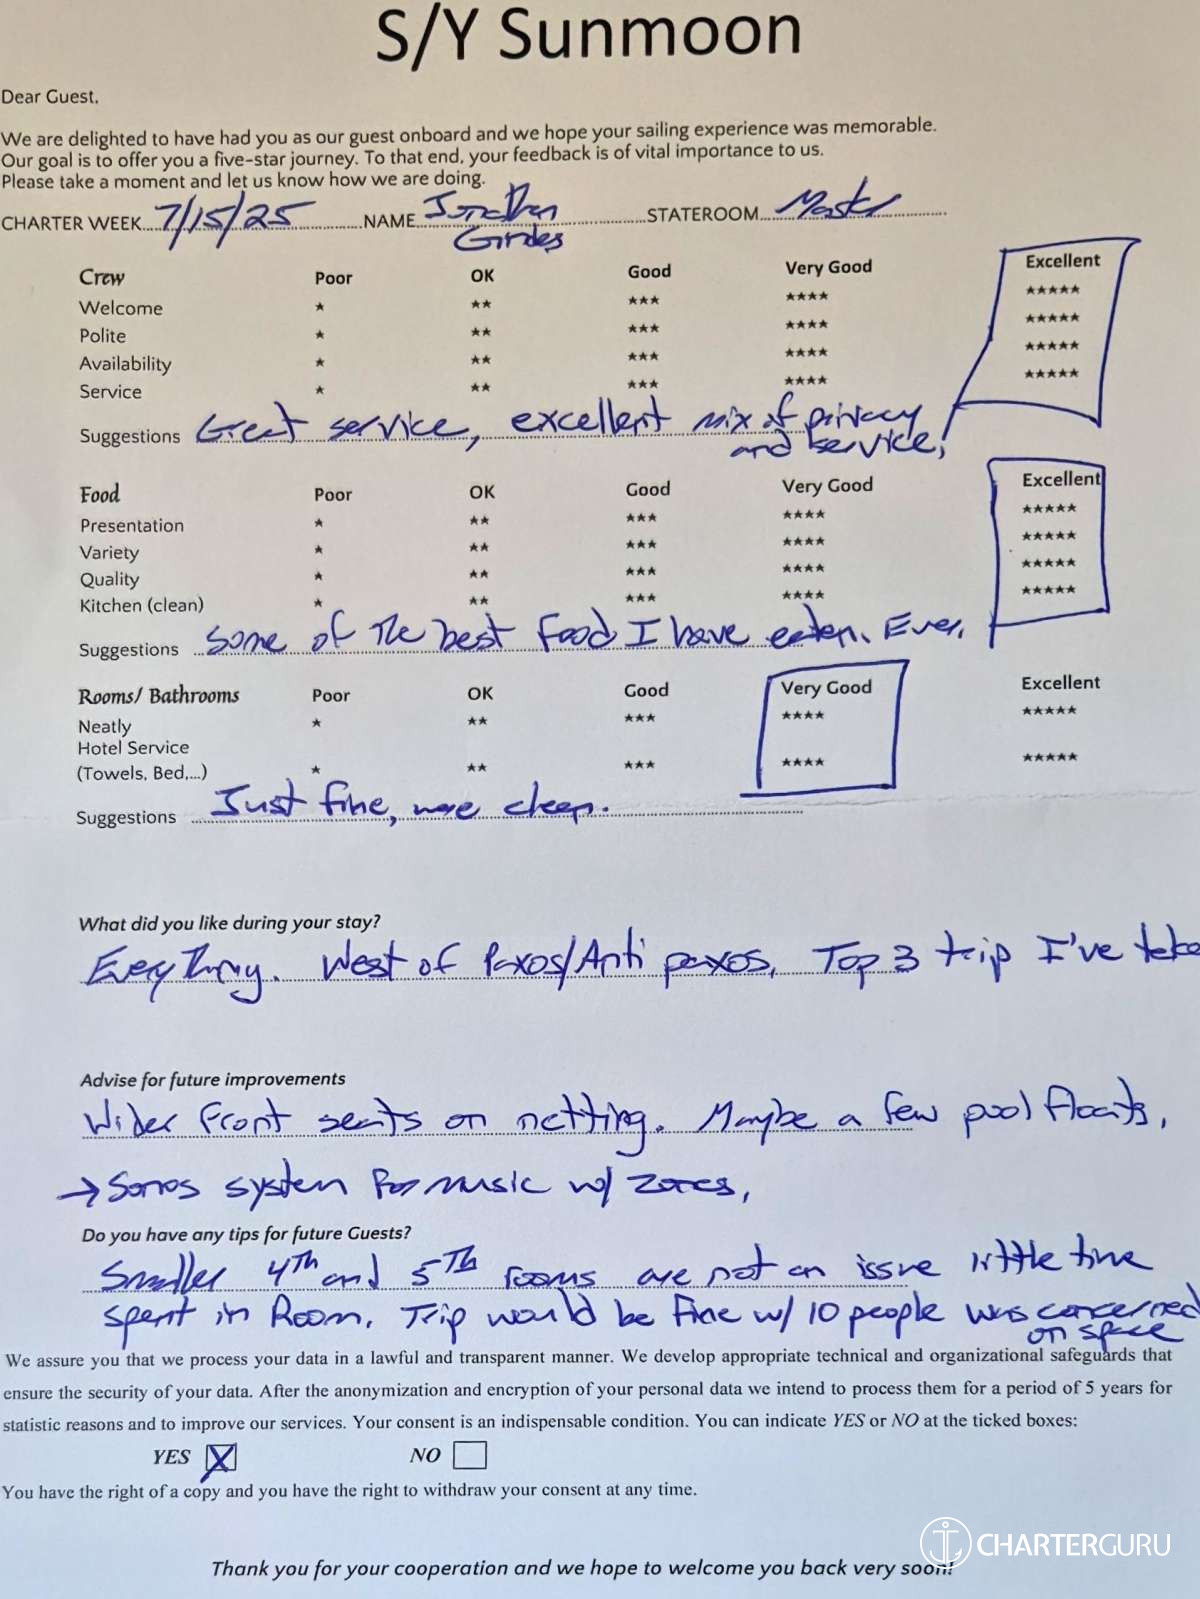 S/Y Sunmoon
Dear Guest,
We are delighted to have had you as our guest onboard and we hope your sailing experience was memorable.
Our goal is to offer you a five-star journey. To that end, your feedback is of vital importance to us.
Please take a moment and let us know how we are doing.
CHARTER WEEK 7/15/25 NAME Jonathan STATEROOM Master
Crew Poor OK Good Very Good Excellent
Welcome ★ ★★ ★★★ ★★★★ ★★★★★
Polite ★ ★★ ★★★ ★★★★ ★★★★★
Availability ★ ★★ ★★★ ★★★★ ★★★★★
Service ★ ★★ ★★★ ★★★★ ★★★★★
Suggestions Great service, excellent mix of privacy
and service,
Food Poor OK Good Very Good Excellent
Presentation ★ ★★ ★★★ ★★★★ ★★★★★
Variety ★ ★★ ★★★ ★★★★ ★★★★★
Quality ★ ★★ ★★★ ★★★★ ★★★★★
Kitchen (clean) ★ ★★ ★★★ ★★★★ ★★★★★
Suggestions Some of the best food I have eaten. Ever.
Rooms/ Bathrooms Poor OK Good Very Good Excellent
Neatly ★ ★★ ★★★ ★★★★ ★★★★★
Hotel Service
(Towels, Bed,...) ★ ★★ ★★★ ★★★★ ★★★★★
Suggestions Just fine, were clean.
What did you like during your stay?
Everything. West of Paxos/Anti paxos, Top 3 trip I've take
Advise for future improvements
Wider Front seats on netting. Maybe a few pool floats,
→ Sonos system for music w/ zones,
Do you have any tips for future Guests?
Smaller 4th and 5th rooms are not an issue little time
spent in Room. Trip would be fine w/ 10 people was concerned
on space
We assure you that we process your data in a lawful and transparent manner. We develop appropriate technical and organizational safeguards that
ensure the security of your data. After the anonymization and encryption of your personal data we intend to process them for a period of 5 years for
statistic reasons and to improve our services. Your consent is an indispensable condition. You can indicate YES or NO at the ticked boxes:
YES X NO
You have the right of a copy and you have the right to withdraw your consent at any time.
CHARTERGURU
Thank you for your cooperation and we hope to welcome you back very soon!